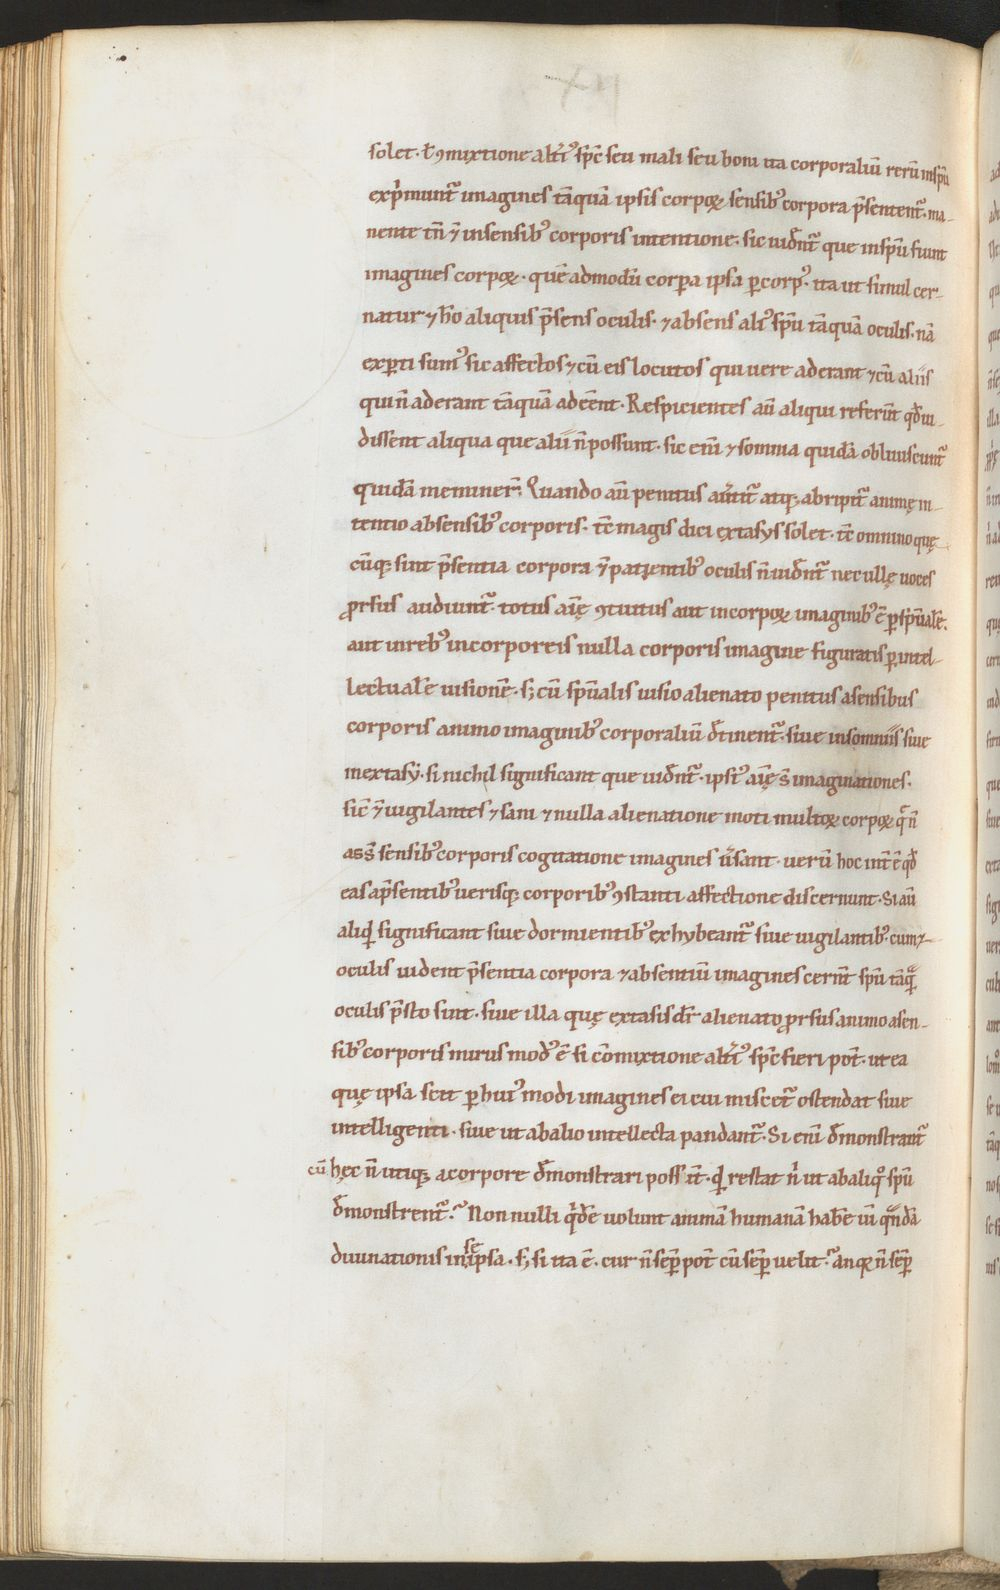 solet · ł ꝯmixtione alt̾iꝰ sp̄c seu mali seu boni ita corporaliū rerū insp̄u
exp̍munt᷑ imagines tāquā ipsis corpoꝝ sensibꝰ corpora p̄sentent᷑ · ma-
nente tn̄ ⁊ insensibꝰ corporis intentione · sic uid̄nt᷑ que insp̄u fiunt
imagines corpoꝝ · quē admodū corꝑa ipsa ꝑcorpꝰ · ita ut simul cer-
natur ⁊ hō aliquis p̄sens oculis · ⁊ absens aliꝰ sp̄u tāquā oculis · nā
exꝑti sumꝰ sic affectos ⁊ cū eis locutos qui uere aderant ⁊ cū aliis
qui n̄ aderant tāquā adeēnt · Respicientes aū aliqui referūt qd̄ ui-
dissent aliqua que alii n̄ possunt · sic eni̅ ⁊ somnia quidā obliuiscunt᷑
quidā meminer̄ · Quando aū penitus au̾tit᷑ atq; abripit᷑ animę in-
tentio absensibꝰ corporis · tc̄ magis dici extasys solet · tc̄ omnino quę-
cūq; sint p̄sentia corpora ⁊̄ patientibꝰ oculis n̄ uid̄nt᷑ nec ullę uoces
ꝓrsus audiunt᷑ · totus aīę ꝯtuitus aut in corpoꝝ imaginibꝰ ē ꝑ sp̄ualē ·
aut inrebꝰ incorporeis nulla corporis imagine figuratis ꝑ intel-
lectualē uisionē · s; cū sp̄ualis uisio alienato penitus asensibus
corporis animo imaginibꝰ corporaliū d̄tinent᷑ · siue insomniis siue
inextasy̆ · si nichil significant que uid̄nt᷑ · ipsiꝰ aīę s̄ imaginationes ·
sic̄ ⁊̄ uigilantes ⁊ sani ⁊ nulla alienatione moti multoꝝ corpoꝝ q̄ n̄
ass̄ sensibꝰ corporis cogitatione imagines u̾sant · uerū hoc int̄ē qd̄
eas ap̄sentibꝰ uerisq; corporibꝰ ꝯstanti affectione discernunt · Si aū
aliqd̍ significant siue dormientibꝰ exhybeant᷑ siue uigilantibꝰ · cum ⁊
oculis uident p̄sentia corpora ⁊ absentiū imagines cernūt sp̄u tāq̄
oculis p̄sto sint · siue illa quę extasis dr̄ alienato ꝓrsus animo asen-
sibꝰ corporis mirus modꝰ ē si cōmixtione alt̾iꝰ sp̄c fieri pot̄ · ut ea
quę ipsa scit ꝑ huiꝰ modi imagines ei cui miscet᷑ ostendat siue
intelligenti · siue ut abalio intellecta pandant᷑ · Si eni̅ d̄monstrant᷑
cū hęc n̄ utiq; acorpore d̄monstrari poss̄t · qd̍ restat n̍ ut abaliqͦ sp̄u
d̄monstrent᷑ · ? Non nulli qͥdē uolunt animā humanā habē uī qͣndā
diuinationis in se ipsa · s; si ita ē · cur n̄ semꝑ pot̄ cū semꝑ uelit ? an qꝛ n̄ semꝑ